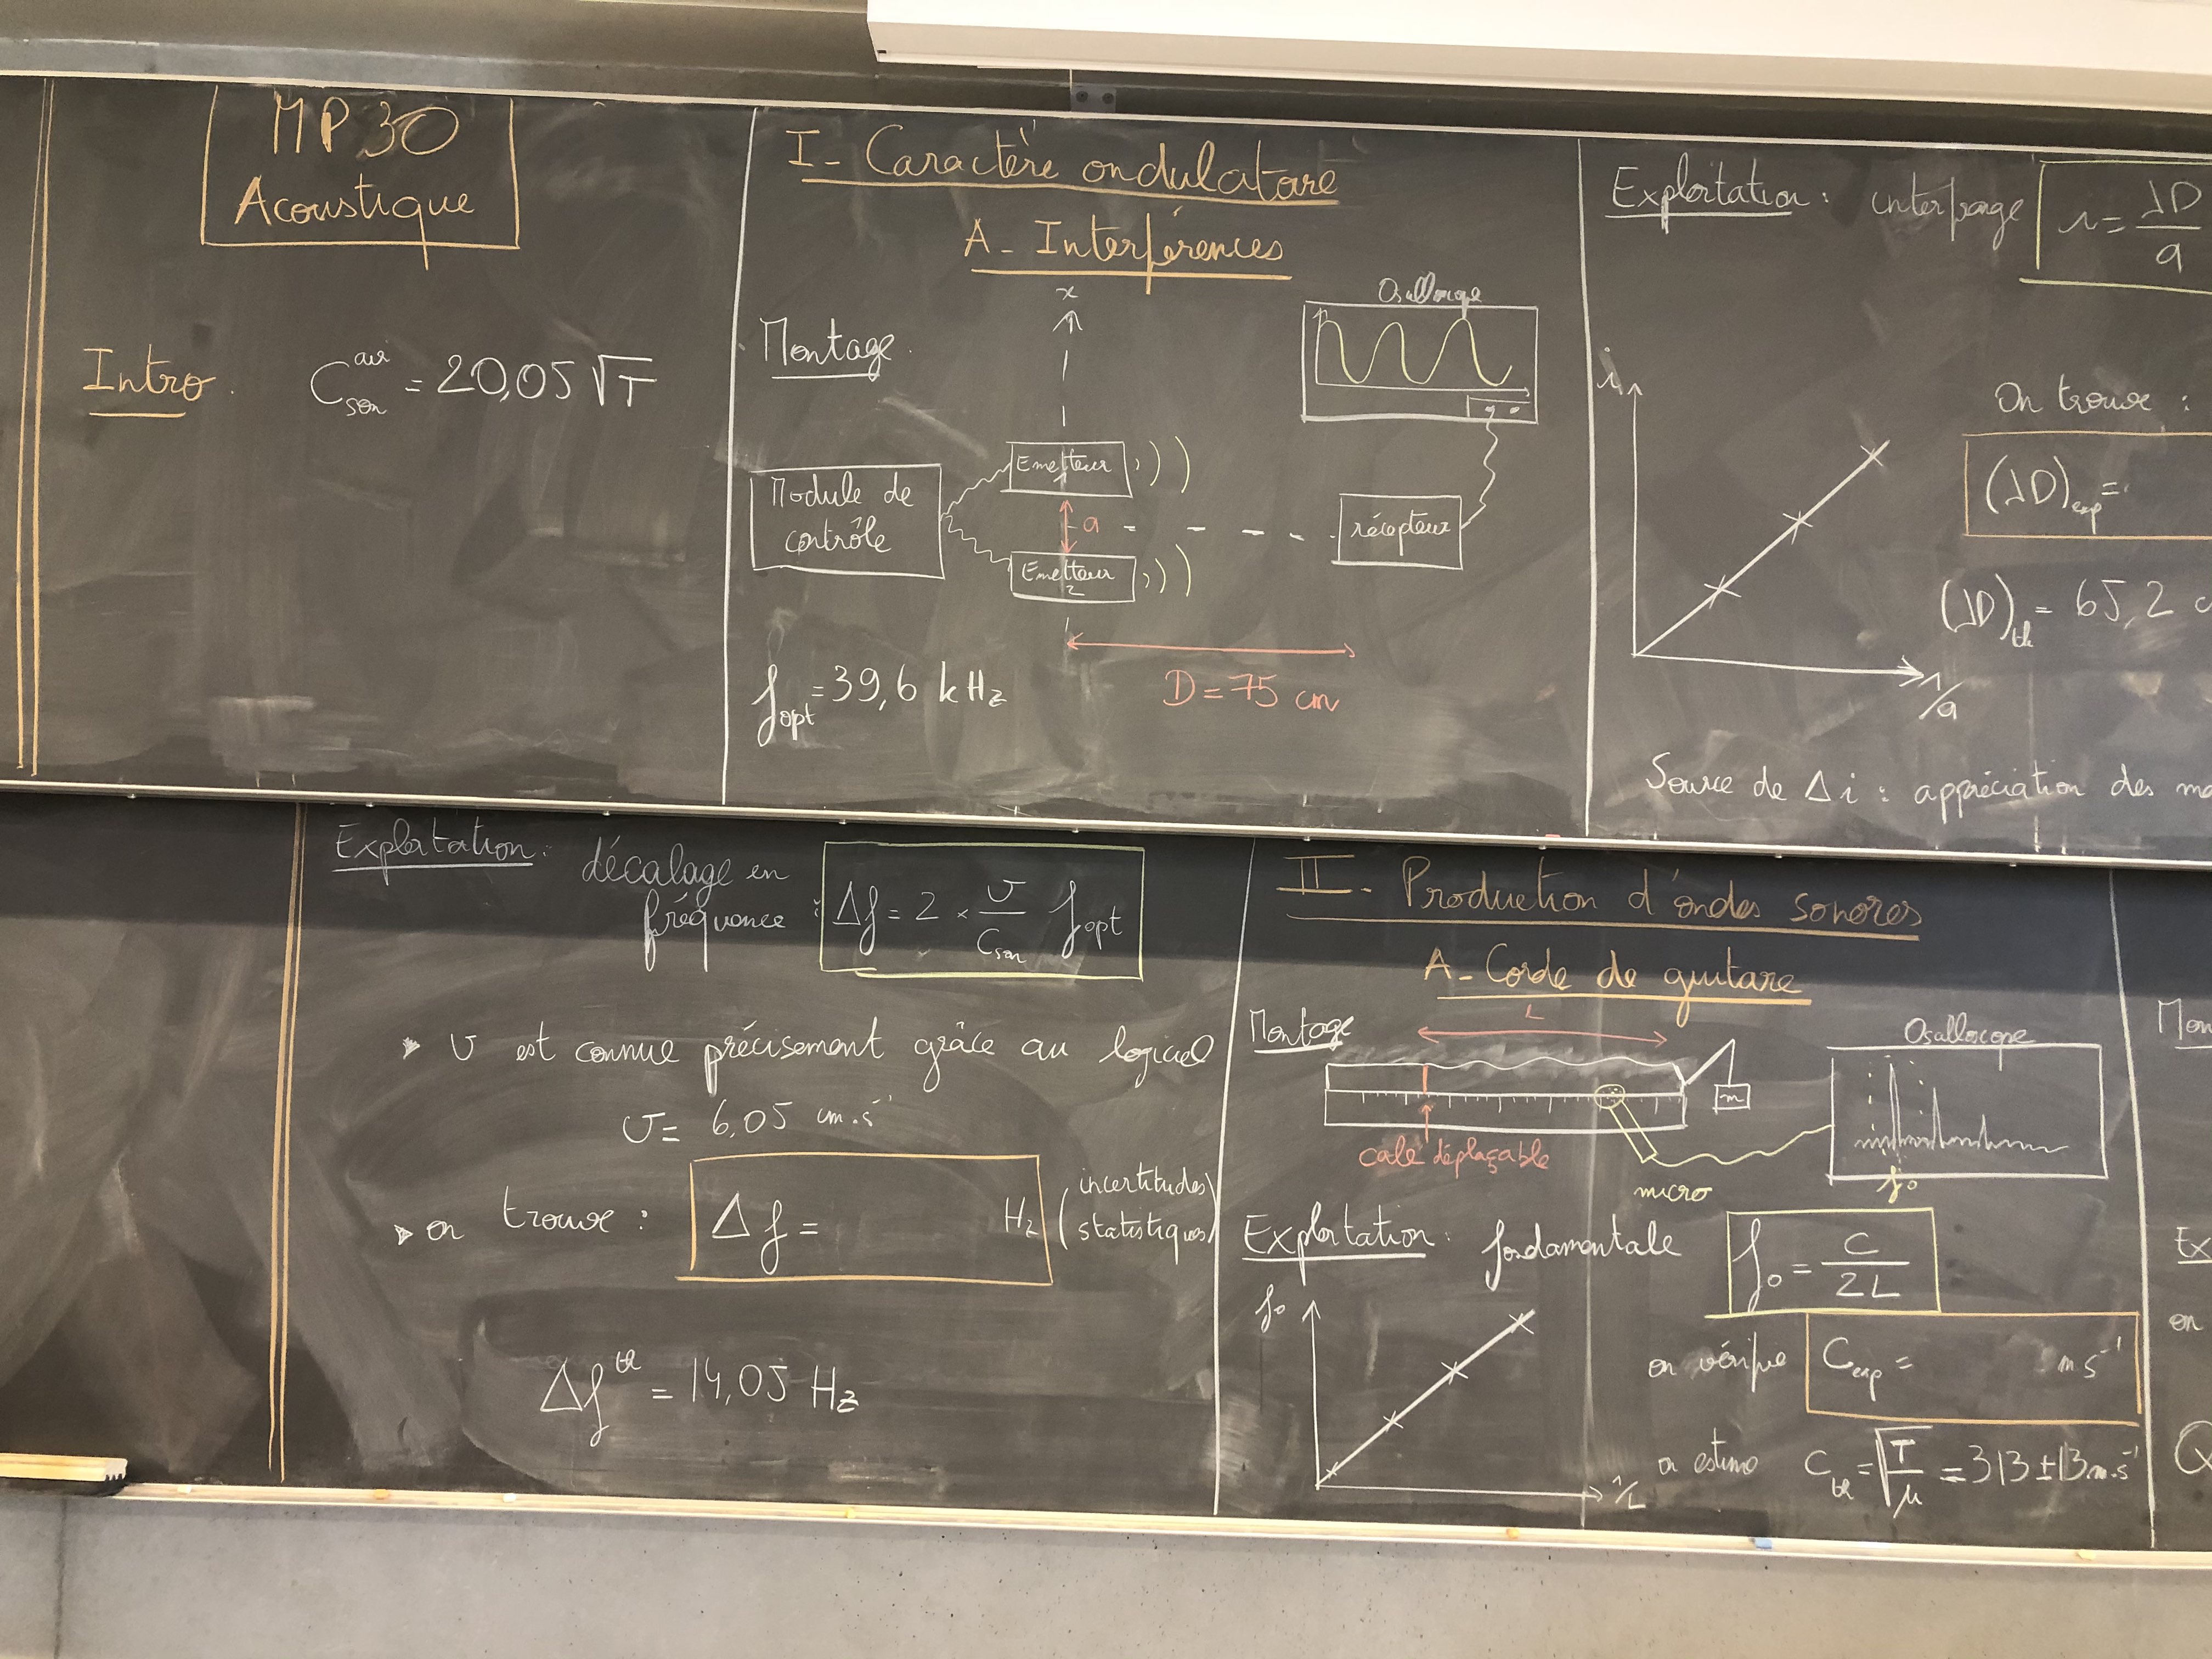 MP30
Acoustique
Intro.
C_son^air = 20,05 √T
I - Caractère ondulatoire
A - Interférences
Montage.
x
Oscilloscope
Module de
contrôle
Emetteur
1
a
Emetteur
2
récepteur
f_opt = 39,6 kHz
D = 75 cm
Exploitation : interfrange
i = λD/a
i
1/a
On trouve :
(λD)_exp =
(λD)_th = 65,2 c
Source de Δi : appréciation des
Exploitation : décalage en
fréquence :
Δf = 2 × v/C_son f_opt
v est connue précisement grâce au logiciel
v = 6,05 cm.s⁻¹
on trouve : Δf = Hz (incertitudes
statistiques)
Δf^th = 14,05 Hz
II - Production d'ondes sonores
A - Corde de guitare
Montage
L
m
Oscilloscope
f₀
cale déplaçable
micro
Exploitation : fondamentale
f₀ = C/2L
f₀
1/L
on vérifie C_exp = m s⁻¹
on estime C_th = √(T/μ) = 313 ± 13 m.s⁻¹
Mon
Ex
on
Q